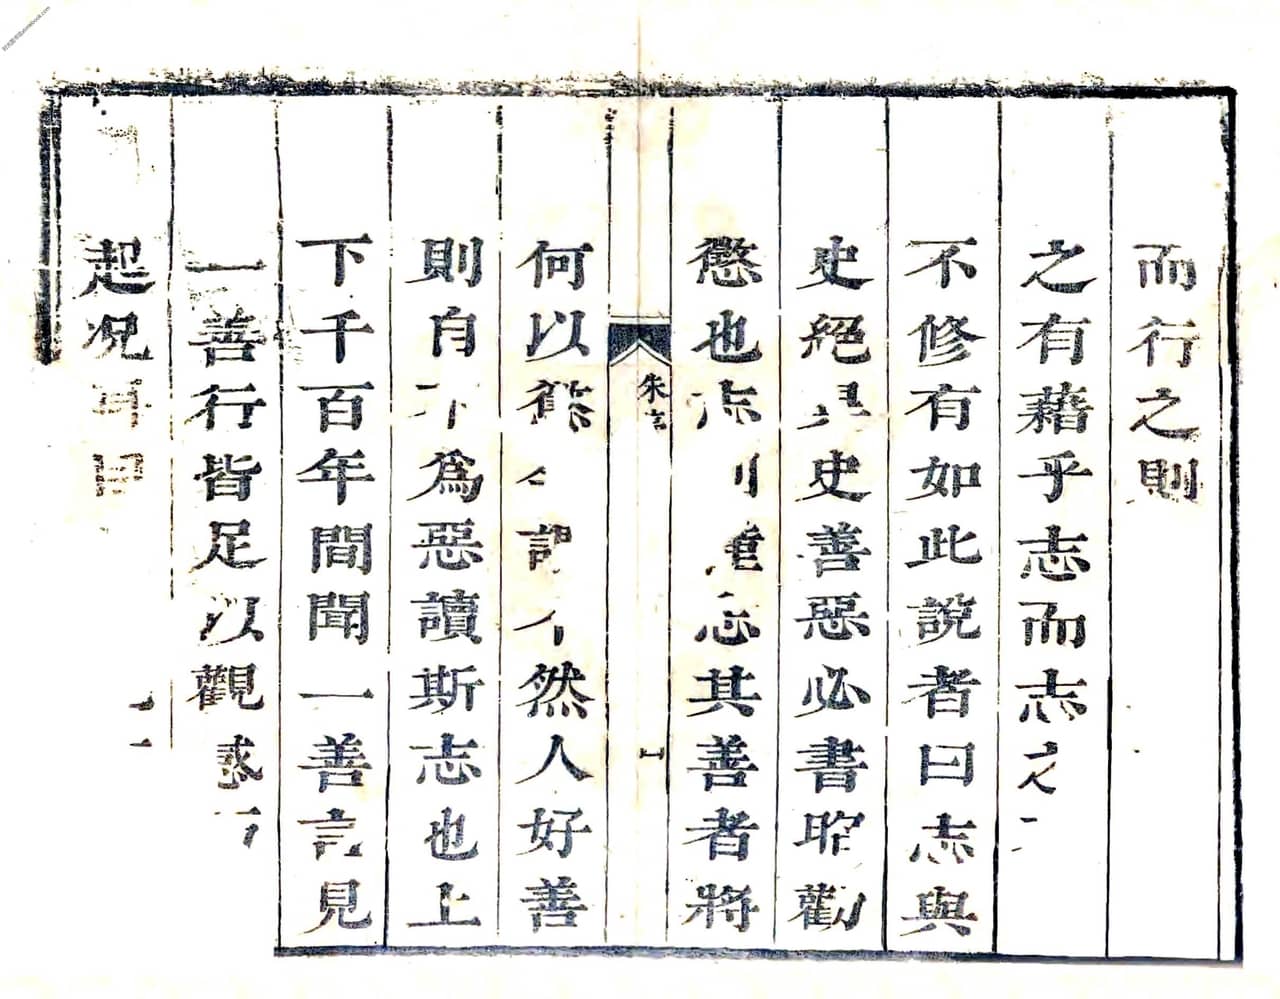 而行之則
之有藉乎志而志之
不修有如此說者曰志與
史絕異史善惡必書昭勸
懲也志則隱惡其善者將
朱
何以能不謂不然人好善
則自不為惡讀斯志也上
下千百年間聞一善言見
一善行皆足以觀感
起况